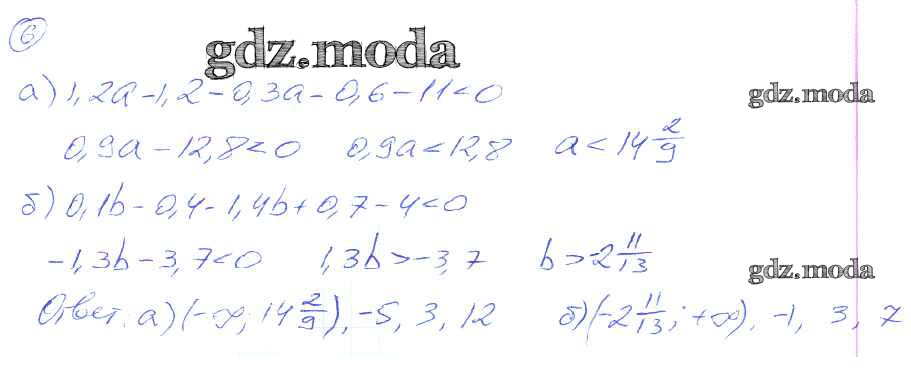 6
gdz.moda
а) 1,2a-1,2-0,3a-0,6-11<0
gdz.moda
0,9a-12,8<0 0,9a<12,8 a<14 2/9
б) 0,1b-0,4-1,4b+0,7-4<0
-1,3b-3,7<0 1,3b>-3,7 b>-2 11/13
gdz.moda
Ответ: а) (-∞; 14 2/9), -5, 3, 12 б) (-2 11/13; +∞), -1, 3, 7